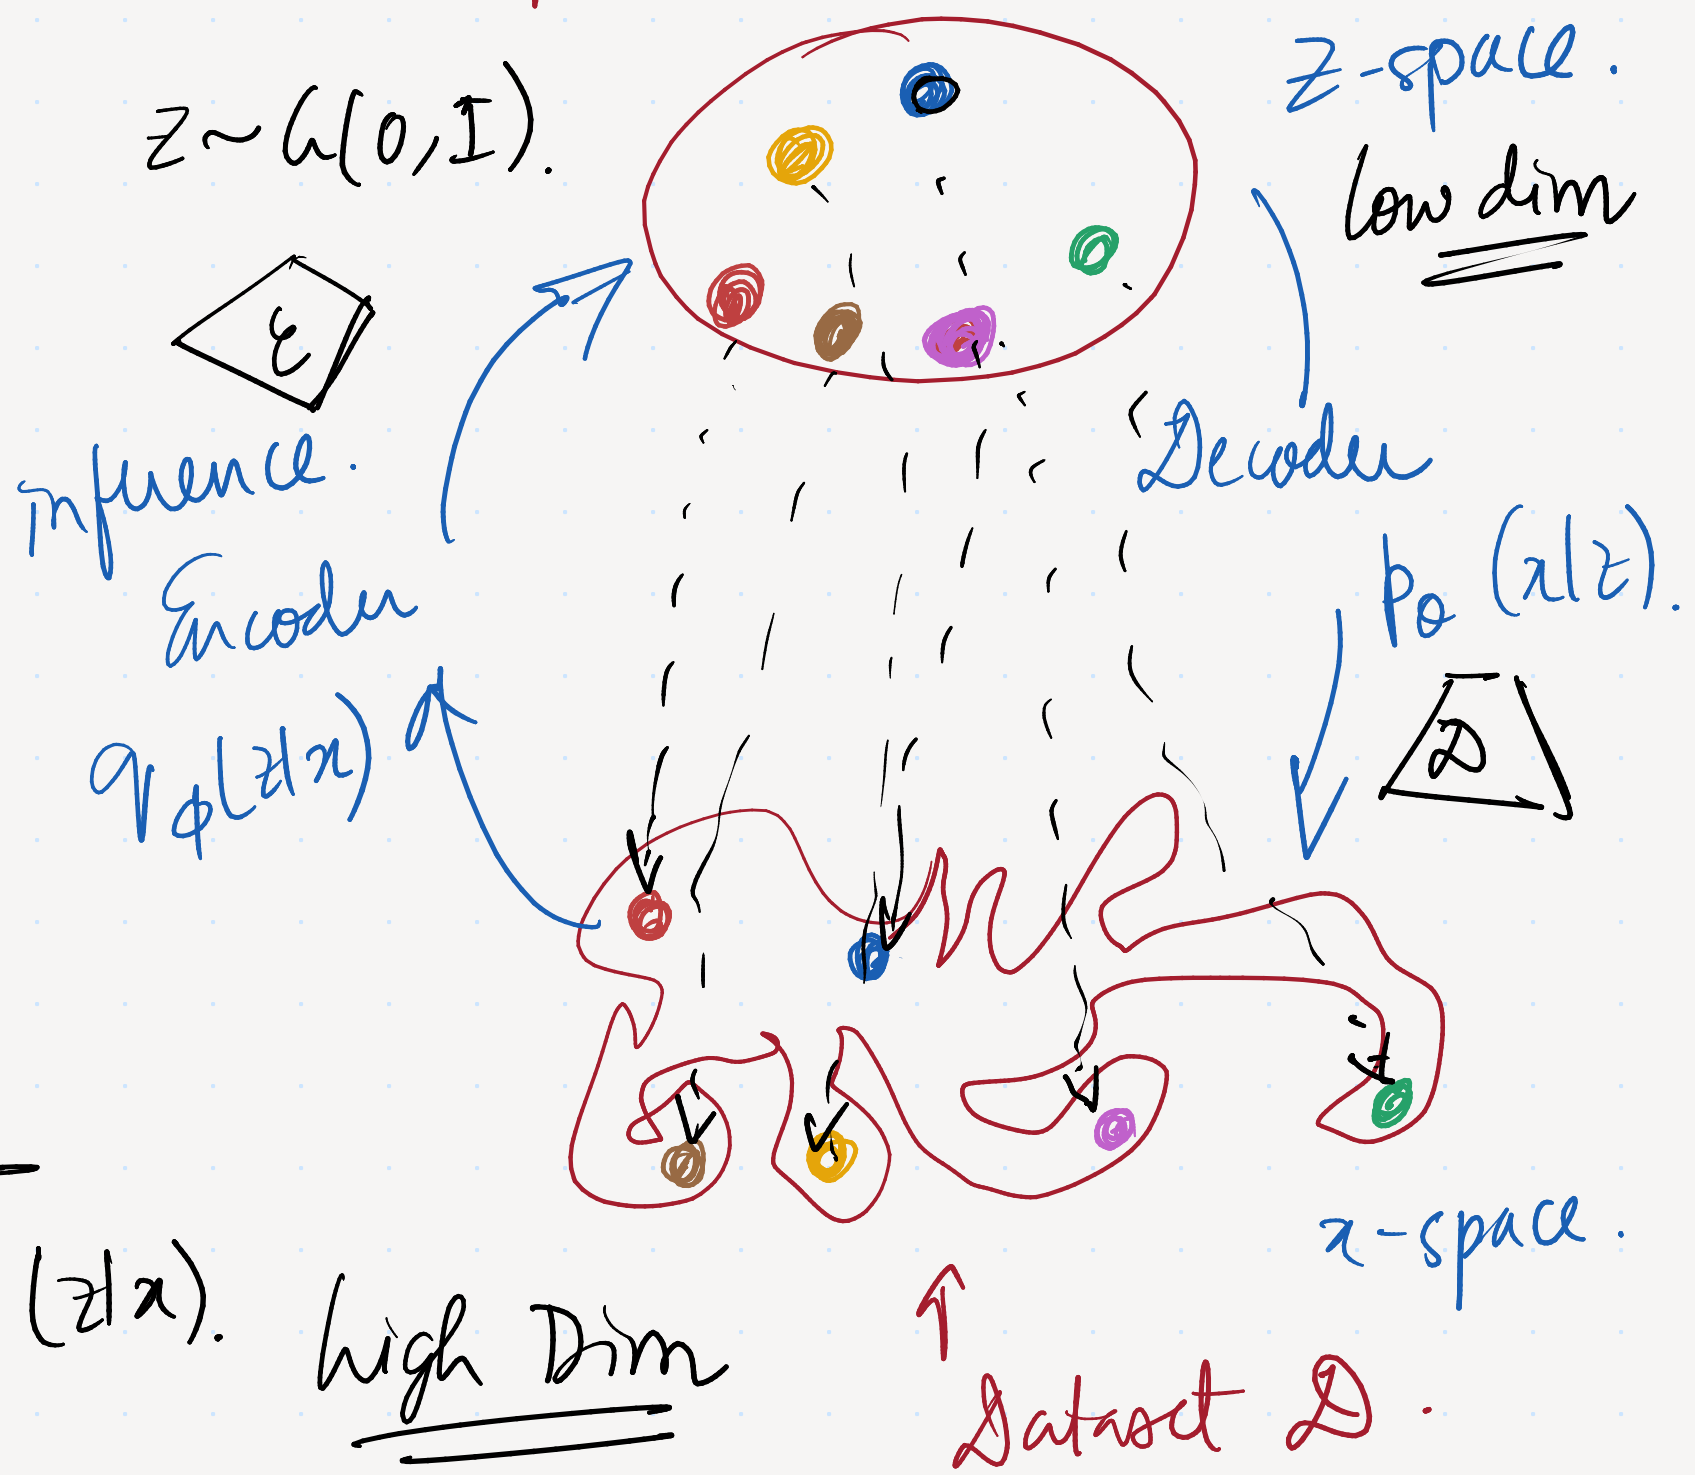 z ~ G(0, I).
z-space.
low dim
ε
inference.
Encoder
q_ϕ(z|x)
Decoder
p_θ (x|z).
D
x-space.
(z|x).
high Dim
Dataset D.